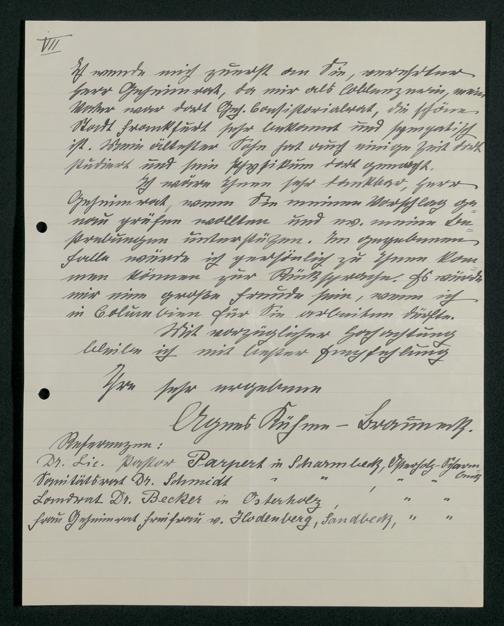 VII
Ich wende mich zuerst an Sie, verehrter
Herr Geheimrat, da mir als Coblenzerin, mein
Vater war dort Geh. Consistorialrat, die schöne
Stadt Frankfurt sehr bekannt und sympatisch
ist. Mein ältester Sohn hat auch einige Zeit dort
studiert und sein Physikum dort gemacht.
Ich wäre Ihnen sehr dankbar, Herr
Geheimrat, wenn Sie meinen Vorschlag ge=
nau prüfen wollten und ev. meine Be=
strebungen unterstützen. Im gegebenen
Falle würde ich persönlich zu Ihnen kom=
men können zur Rücksprache. Es würde
mir eine große Freude sein, wenn ich
in Columbien für Sie arbeiten dürfte.
Mit vorzüglicher Hochachtung
bleibe ich mit bester Empfehlung
Ihre sehr ergebene
Agnes Kühme - Brauneck.
Referenzen:
Dr. Lic. Pastor Parpert in Scharmbeck, Osterholz-Scharm
beck
Sanitätsrat Dr. Schmidt " " , " "
Landrat Dr. Becker in Osterholz, " "
Frau Geheimrat Freifrau v. Hodenberg, Sandbeck, " "